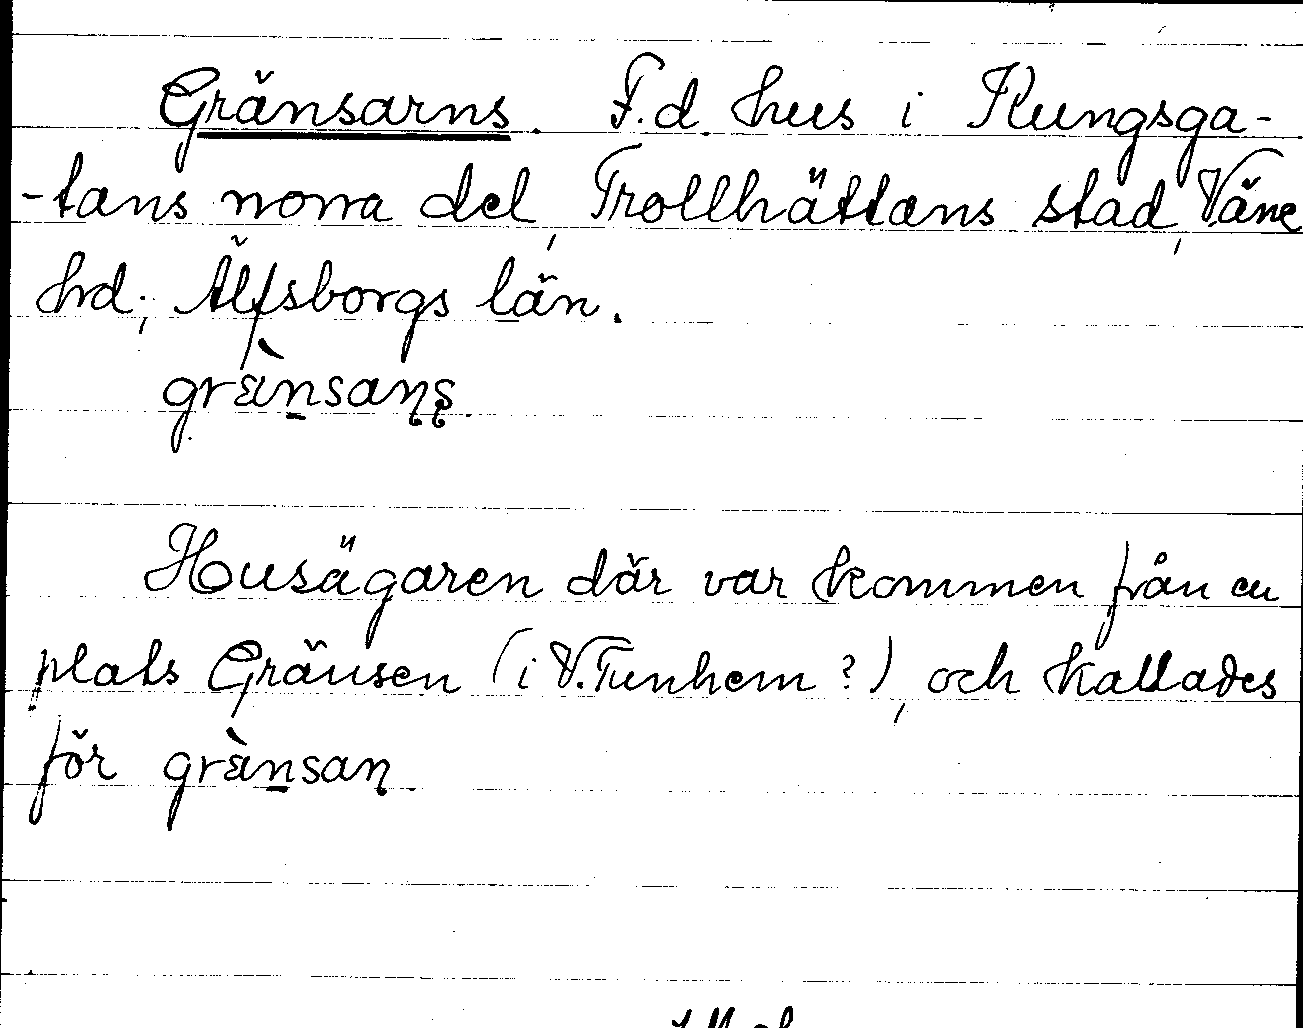 Gränsarns. F.d. hus i Kungsga-
-tans norra del, Trollhättans stad, Väne
hd; Älfsborgs län.
grànsaɳʂ.
Husägaren där var kommen från en
plats Gränsen (i V. Tunhem?), och kallades
för grànsaɳ.